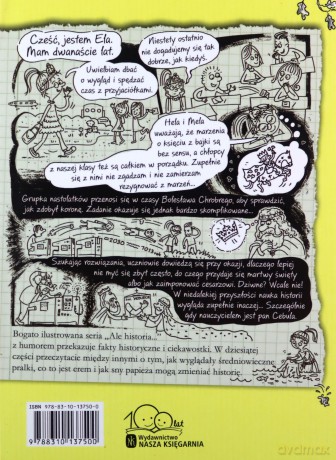 Cześć, jestem Ela.
Mam dwanaście lat.
Niestety ostatnio
nie dogadujemy się tak
dobrze, jak kiedyś.
Uwielbiam dbać
o wygląd i spędzać
czas z przyjaciółkami.
Hela i Mela
uważają, że marzenia
o księciu z bajki są
bez sensu, a chłopcy
z naszej klasy też są całkiem w porządku. Zupełnie
się z nimi nie zgadzam i nie zamierzam
rezygnować z marzeń...
Grupka nastolatków przenosi się w czasy Bolesława Chrobrego, aby sprawdzić,
jak zdobyć koronę. Zadanie okazuje się jednak bardzo skomplikowane...
2030
1025
Szukając rozwiązania, uczniowie dowiedzą się przy okazji, dlaczego lepiej
nie myć się zbyt często, do czego przydaje się martwy święty
albo jak zaimponować cesarzowi. Dziwne? Wcale nie!
W niedalekiej przyszłości nauka historii
wygląda zupełnie inaczej... Szczególnie
gdy nauczycielem jest pan Cebula.
Bogato ilustrowana seria „Ale historia...”
z humorem przekazuje fakty historyczne i ciekawostki. W dziesiątej
części przeczytacie między innymi o tym, jak wyglądały średniowieczne
pralki, co to jest erem i jak sny papieża mogą zmieniać historię.
ISBN 978-83-10-13750-0
9 788310 137500
100 lat
Wydawnictwo
NASZA KSIĘGARNIA
avdmax